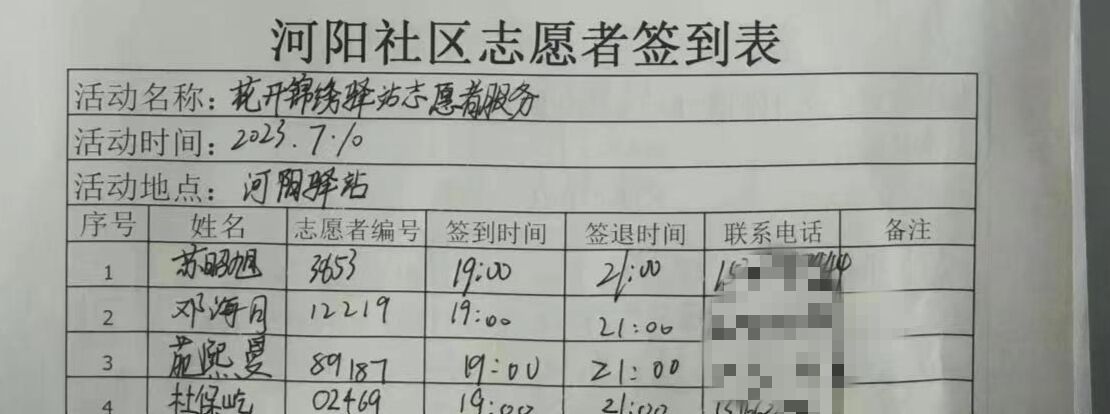 河阳社区志愿者签到表
活动名称：花开锦绣驿站志愿者服务
活动时间：2023.7.10
活动地点：河阳驿站
序号 姓名 志愿者编号 签到时间 签退时间 联系电话 备注
1 苏昭旭 3653 19:00 21:00
2 邓海月 12219 19:00 21:00
3 范熙曼 89187 19:00 21:00
4 杜保屹 02469 19:00 21:00